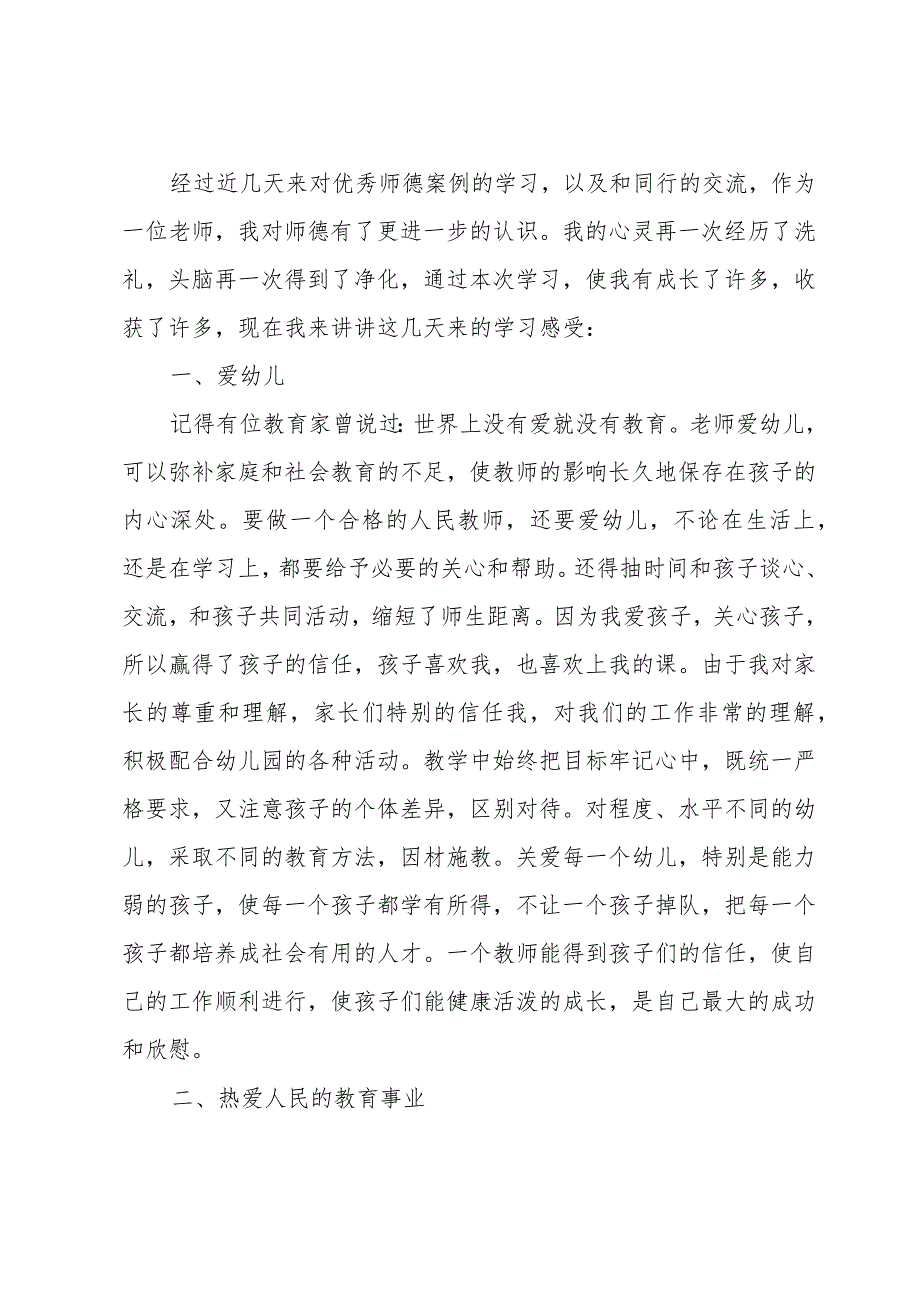 经过近几天来对优秀师德案例的学习，以及和同行的交流，作为
一位老师，我对师德有了更进一步的认识。我的心灵再一次经历了洗
礼，头脑再一次得到了净化，通过本次学习，使我有成长了许多，收
获了许多，现在我来讲讲这几天来的学习感受：
一、爱幼儿
记得有位教育家曾说过：世界上没有爱就没有教育。老师爱幼儿，
可以弥补家庭和社会教育的不足，使教师的影响长久地保存在孩子的
内心深处。要做一个合格的人民教师，还要爱幼儿，不论在生活上，
还是在学习上，都要给予必要的关心和帮助。还得抽时间和孩子谈心、
交流，和孩子共同活动，缩短了师生距离。因为我爱孩子，关心孩子，
所以赢得了孩子的信任，孩子喜欢我，也喜欢上我的课。由于我对家
长的尊重和理解，家长们特别的信任我，对我们的工作非常的理解，
积极配合幼儿园的各种活动。教学中始终把目标牢记心中，既统一严
格要求，又注意孩子的个体差异，区别对待。对程度、水平不同的幼
儿，采取不同的教育方法，因材施教。关爱每一个幼儿，特别是能力
弱的孩子，使每一个孩子都学有所得，不让一个孩子掉队，把每一个
孩子都培养成社会有用的人才。一个教师能得到孩子们的信任，使自
己的工作顺利进行，使孩子们能健康活泼的成长，是自己最大的成功
和欣慰。
二、热爱人民的教育事业